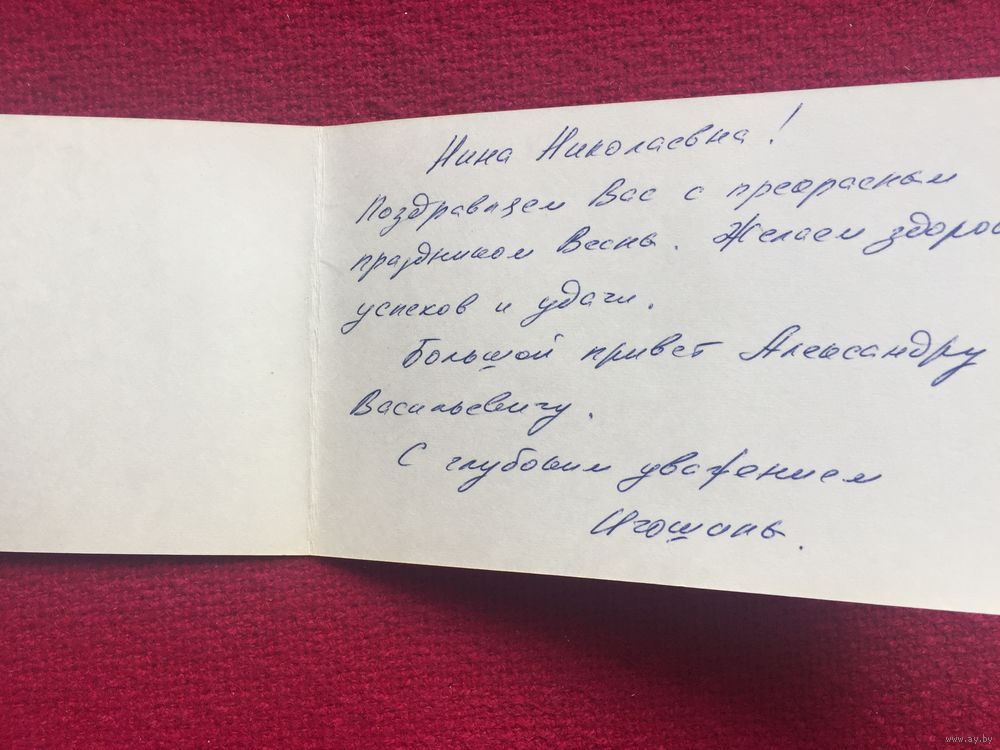 Нина Николаевна!
Поздравляем Вас с прекрасным
праздником Весны. Желаем здоров
успехов и удачи.
Большой привет Александру
Васильевичу.
С глубоким уважением
Игошины.
www.ay.by